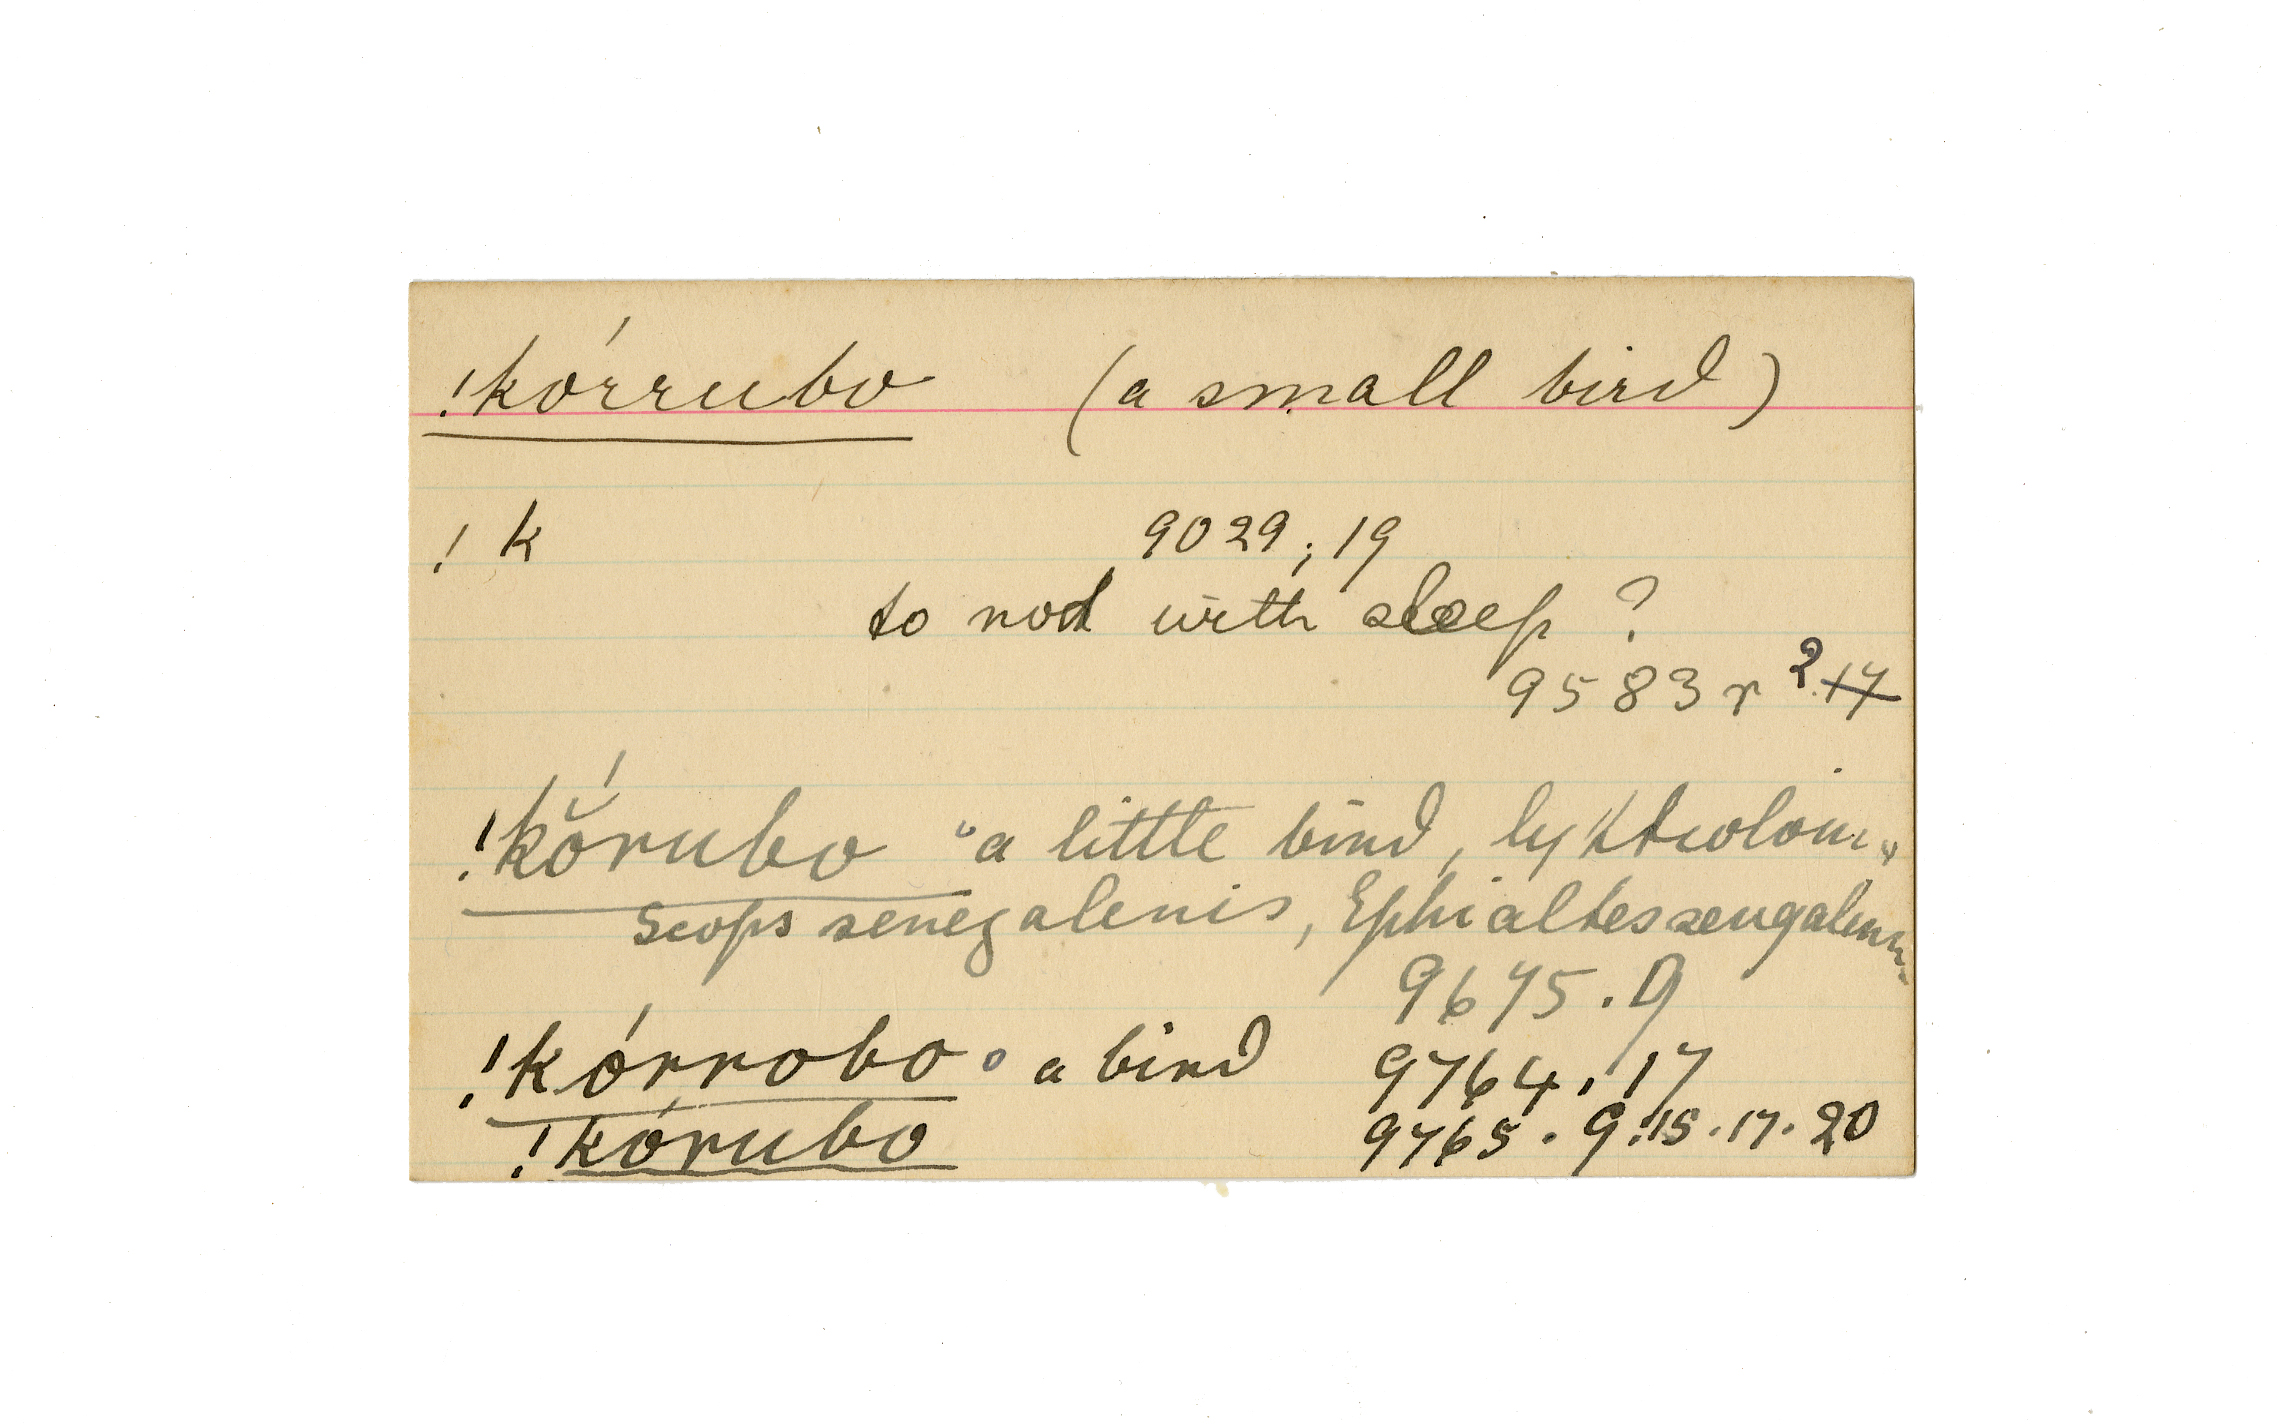 !kórrubo (a small bird)
! k 9029; 19
to nod with sleep ?
9583 r 2 17
!kŏ́rubo "a little bird,
Scops senegalenis, Ephialtes
9675. 9
!kórrobo a bird 9764. 17
!kórubo 9765. 9. 15. 17. 20